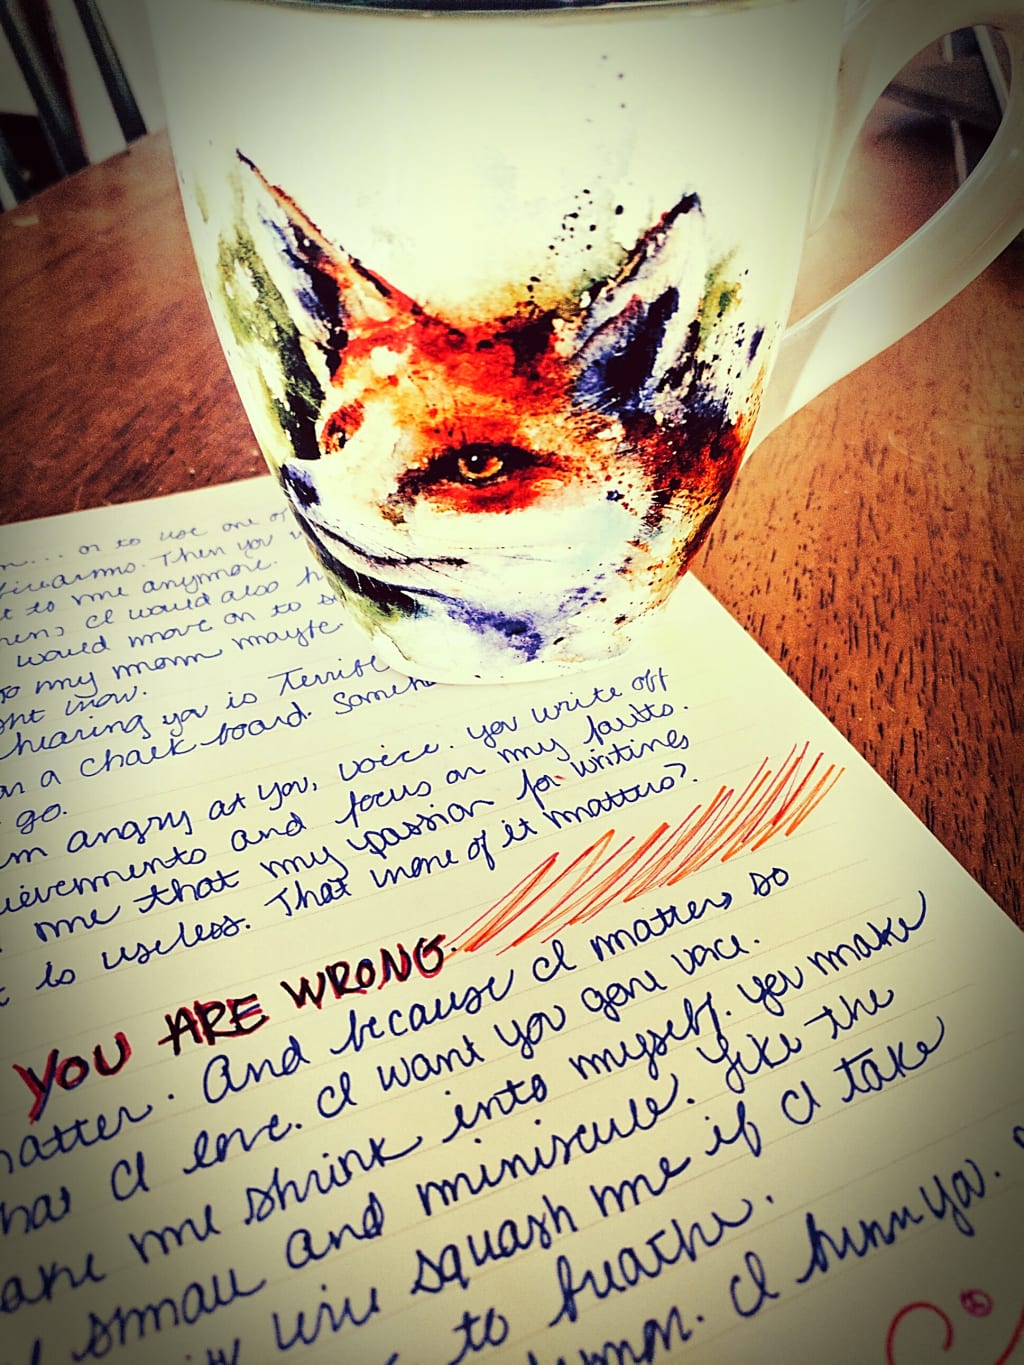 ... or to use one of
firearms. Then you
to me anymore.
I would also
would move on to
my mom maybe
now.
hearing you is terrible
on a chalk board.
go.
angry at you, voice. You write off
and focus on my faults.
me that my passion for writing
is useless. That none of it matters?
YOU ARE WRONG.
matter. And because I matter, so
I love. I want you gone voice.
me shrink into myself. You make
small and miniscule. Like the
will squash me if I take
to breathe.
I